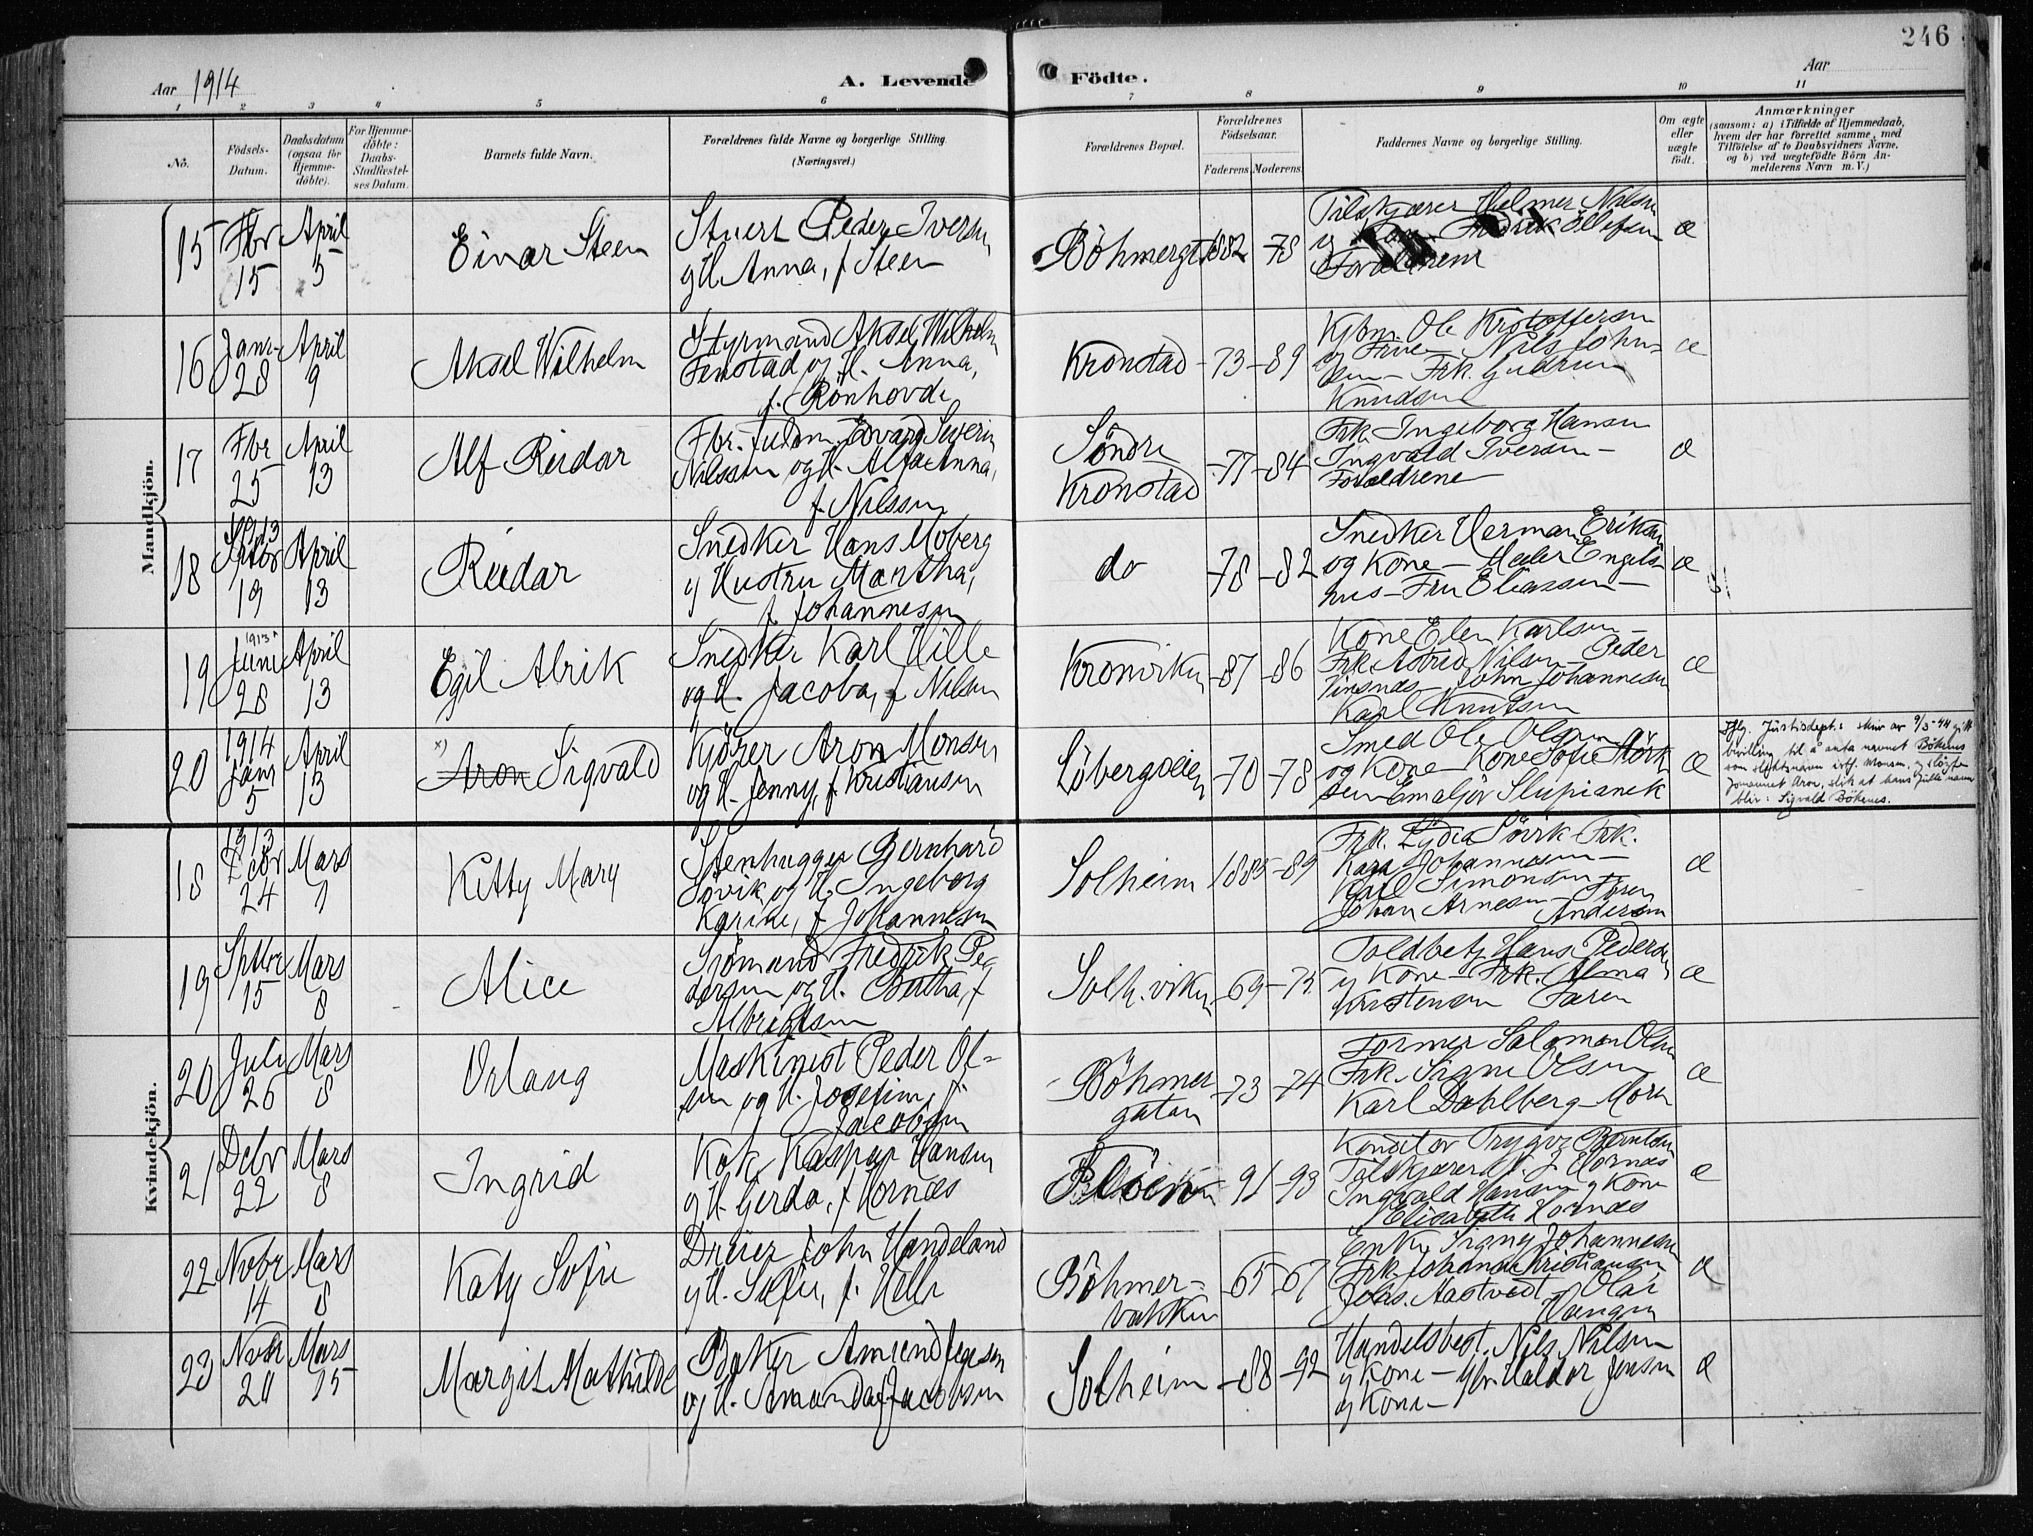 246
Aar 1914
A. Levende Födte.
Aar
1 2 3 4 5 6 7 8 9 10 11
No.
Födsels-Datum.
Daabsdatum (ogsaa for Hjemme-döbte).
For Hjemme-döbte: Daabs-Stadfæstel-ses Datum.
Barnets fulde Navn.
Forældrenes fulde Navne og borgerlige Stilling (Næringsvei.)
Forældrenes Bopæl.
Forældrenes Födselsaar.
Faderens Moderens
Faddernes Navne og borgerlige Stilling.
Om ægte eller uægte födt.
Anmærkninger
(saasom: a) i Tilfælde af Hjemmedaab,
hvem der har forrettet samme, med
Tilföielse af to Daabsvidners Navne,
og b) ved uægtefödte Börn An-
melderens Navn m. V.)
Mandkjön.
15
Fbr
15
April
5
Einar Steen
Stuert Peder Iversen
og H. Anna, f. Steen
Böhmergt.
1882 -78
Tilskjærer Helmer Nilsen
og Fredrik Ellefsen
Forældrene
æ
16
Janr.
28
April
9
Aksel Wilhelm
Styrmand Aksel Wilhelm
Finstad og H. Anna,
f. Rönhovde
Kronstad
-73 -89
Kjbm. Ole Kristoffersen
og Frue - Nils John-
sen - Frk. Gudrun
Knudsen
æ
17
Fbr
25
April
13
Alf Reidar
Fbr. Edvard Severin
Nilssen og H. Anna,
f. Nilssen
Söndre
Kronstad
-77 -84
Frk. Ingeborg Hansen
Ingvald Iversen -
Forældrene
æ
18
1913
Sptbr
19
April
13
Reidar
Snedker Hans Moberg
og Hustru Martha,
f. Johannesen
do
-78 -82
Snedker Herman Eriksen
og Kone - Peder Engels-
hus - Fru Eliassen -
æ
19
1913
Juni
28
April
13
Egil Alrik
Snedker Karl Hille
og H. Jacoba, f. Nilsen
Kronviken
-87 -86
Kone Elen Karlsen -
Frk. Astrid Nilsen - Peder
Vinsnes - John Johannesen
Karl Knutsen
æ
20
1914
Janr
5
April
13
x) Aron Sigvald
Kjörer Aron Monsen
og H. Jenny, f. Kristiansen
Löbergsveien
-70 -78
Smed Ole Olsen
og Kone - Kone Sofie Störk-
sen Emaljör Slupianek
æ
Iflg. Justisdept.s skriv av 9/3-44 gitt
bevilling til å anta navnet Bökenes
som slektsnavn istf. Monsen, og slöyfe
fornavnet Aron, slik at hans fulle navn
blir: Sigvald Bökenes.
Kvindekjön.
18
1913
Debr
24
Mars
1
Kitty Mary
Stenhugger Bernhard
Sövik og H. Ingeborg
Karine, f. Johannesen
Solheim
1885 -89
Frk. Lydia Sövik - Frk.
Kaga Johannesen -
Karl Simonsen -
Johan Arnesen - Sören
Andersen
æ
19
Sptbr
15
Mars
8
Alice
Sjömand Fredrik Pe-
dersen og H. Bertha, f
Albrigtsen
Solh. viken
-69 -75
Toldbetj. Hans Pedersen
og Kone - Frk. Alma
Kristensen Faren
æ
20
Juli
26
Mars
8
Orlaug
Maskinist Peder Ol-
sen og H. Josefine,
f. Jacobsen
Böhmer
gaten
-73 -74
Former Salomon Olsen
Frk. Signe Olsen
Karl Dahlberg - Moren
æ
21
Debr
22
Mars
8
Ingrid
Kok Kaspar Hansen
og H. Gerda, f. Hornæs
Flöien
91 -93
Konditor Trygve Berntsen
Tilskjærer Hornæs
Ingvald Hansen og Kone
Elisabeth Hornæs
æ
22
Novbr
14
Mars
8
Katy Sofie
Dreier John Handeland
og H. Sofie, f. Helle
Böhmer-
bakken
-65 -67
Enke Signy Johannesen
Frk. Johanne Kristiansen
Johs. Aastvedt - Olai
Haugen
æ
23
Novbr
20
Mars
15
Margit Mathilde
Baker Amund Jegesen
og H. Amanda f. Jacobsen
Solheim
-88 -92
Handelsbest. Nils Nilsen
og Kone - Gbr. Haldor Jensen
og Kone -
æ